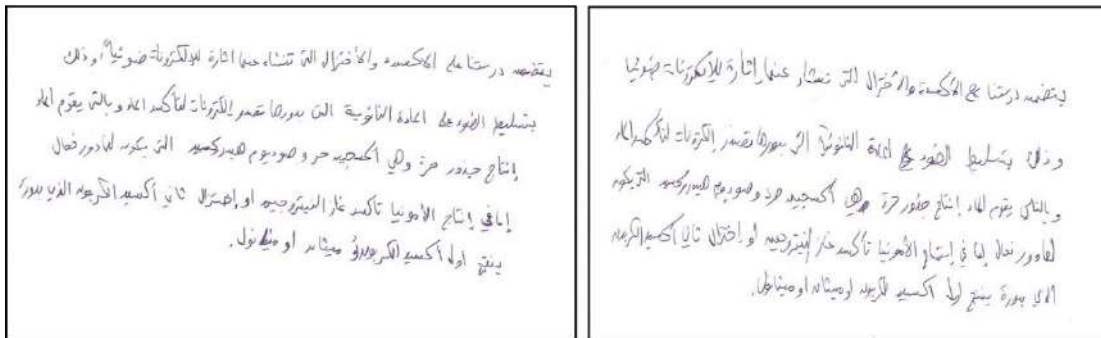 يتضمن درستنا على الاكسدة والأختزال التي تنشاء عنها اثارة للإلكترونات ضوئياً وذلك
بتسليط الضوء على المادة النانوية التي بدورها تصدر إلكترونات لتأكسد الماء وبالتي يقوم الماء
إنتاج جذور حرة وهي أكسجين حر و صوديوم هيدركسيد التي يكون لها دور فعال
إما في إنتاج الأمونيا تأكسد غاز النيتروجين او إختزال ثاني أكسيد الكربون الذي بدورة
ينتج اول أكسيد الكربون أو ميثان او ميثانول.
يتضمن درستنا على الأكسدة والأختزال التي تنشاء عنها إثارة للإلكترونات ضوئيا
وذلك بتسليط الضوء على المادة النانوية التي بدورها تصدر إلكترونات لتأكسد الماء
وبالتالي يقوم الماء إنتاج جذور حرة وهي أكسجين حر و صوديوم هيدركسيد التي يكون
لها دور فعال إما في إنتاج الأمونيا تأكسد غاز النيتروجين او إختزال ثاني أكسيد الكربون
الذي بدورة ينتج اول اكسيد الكربون او ميثان او ميثانول.